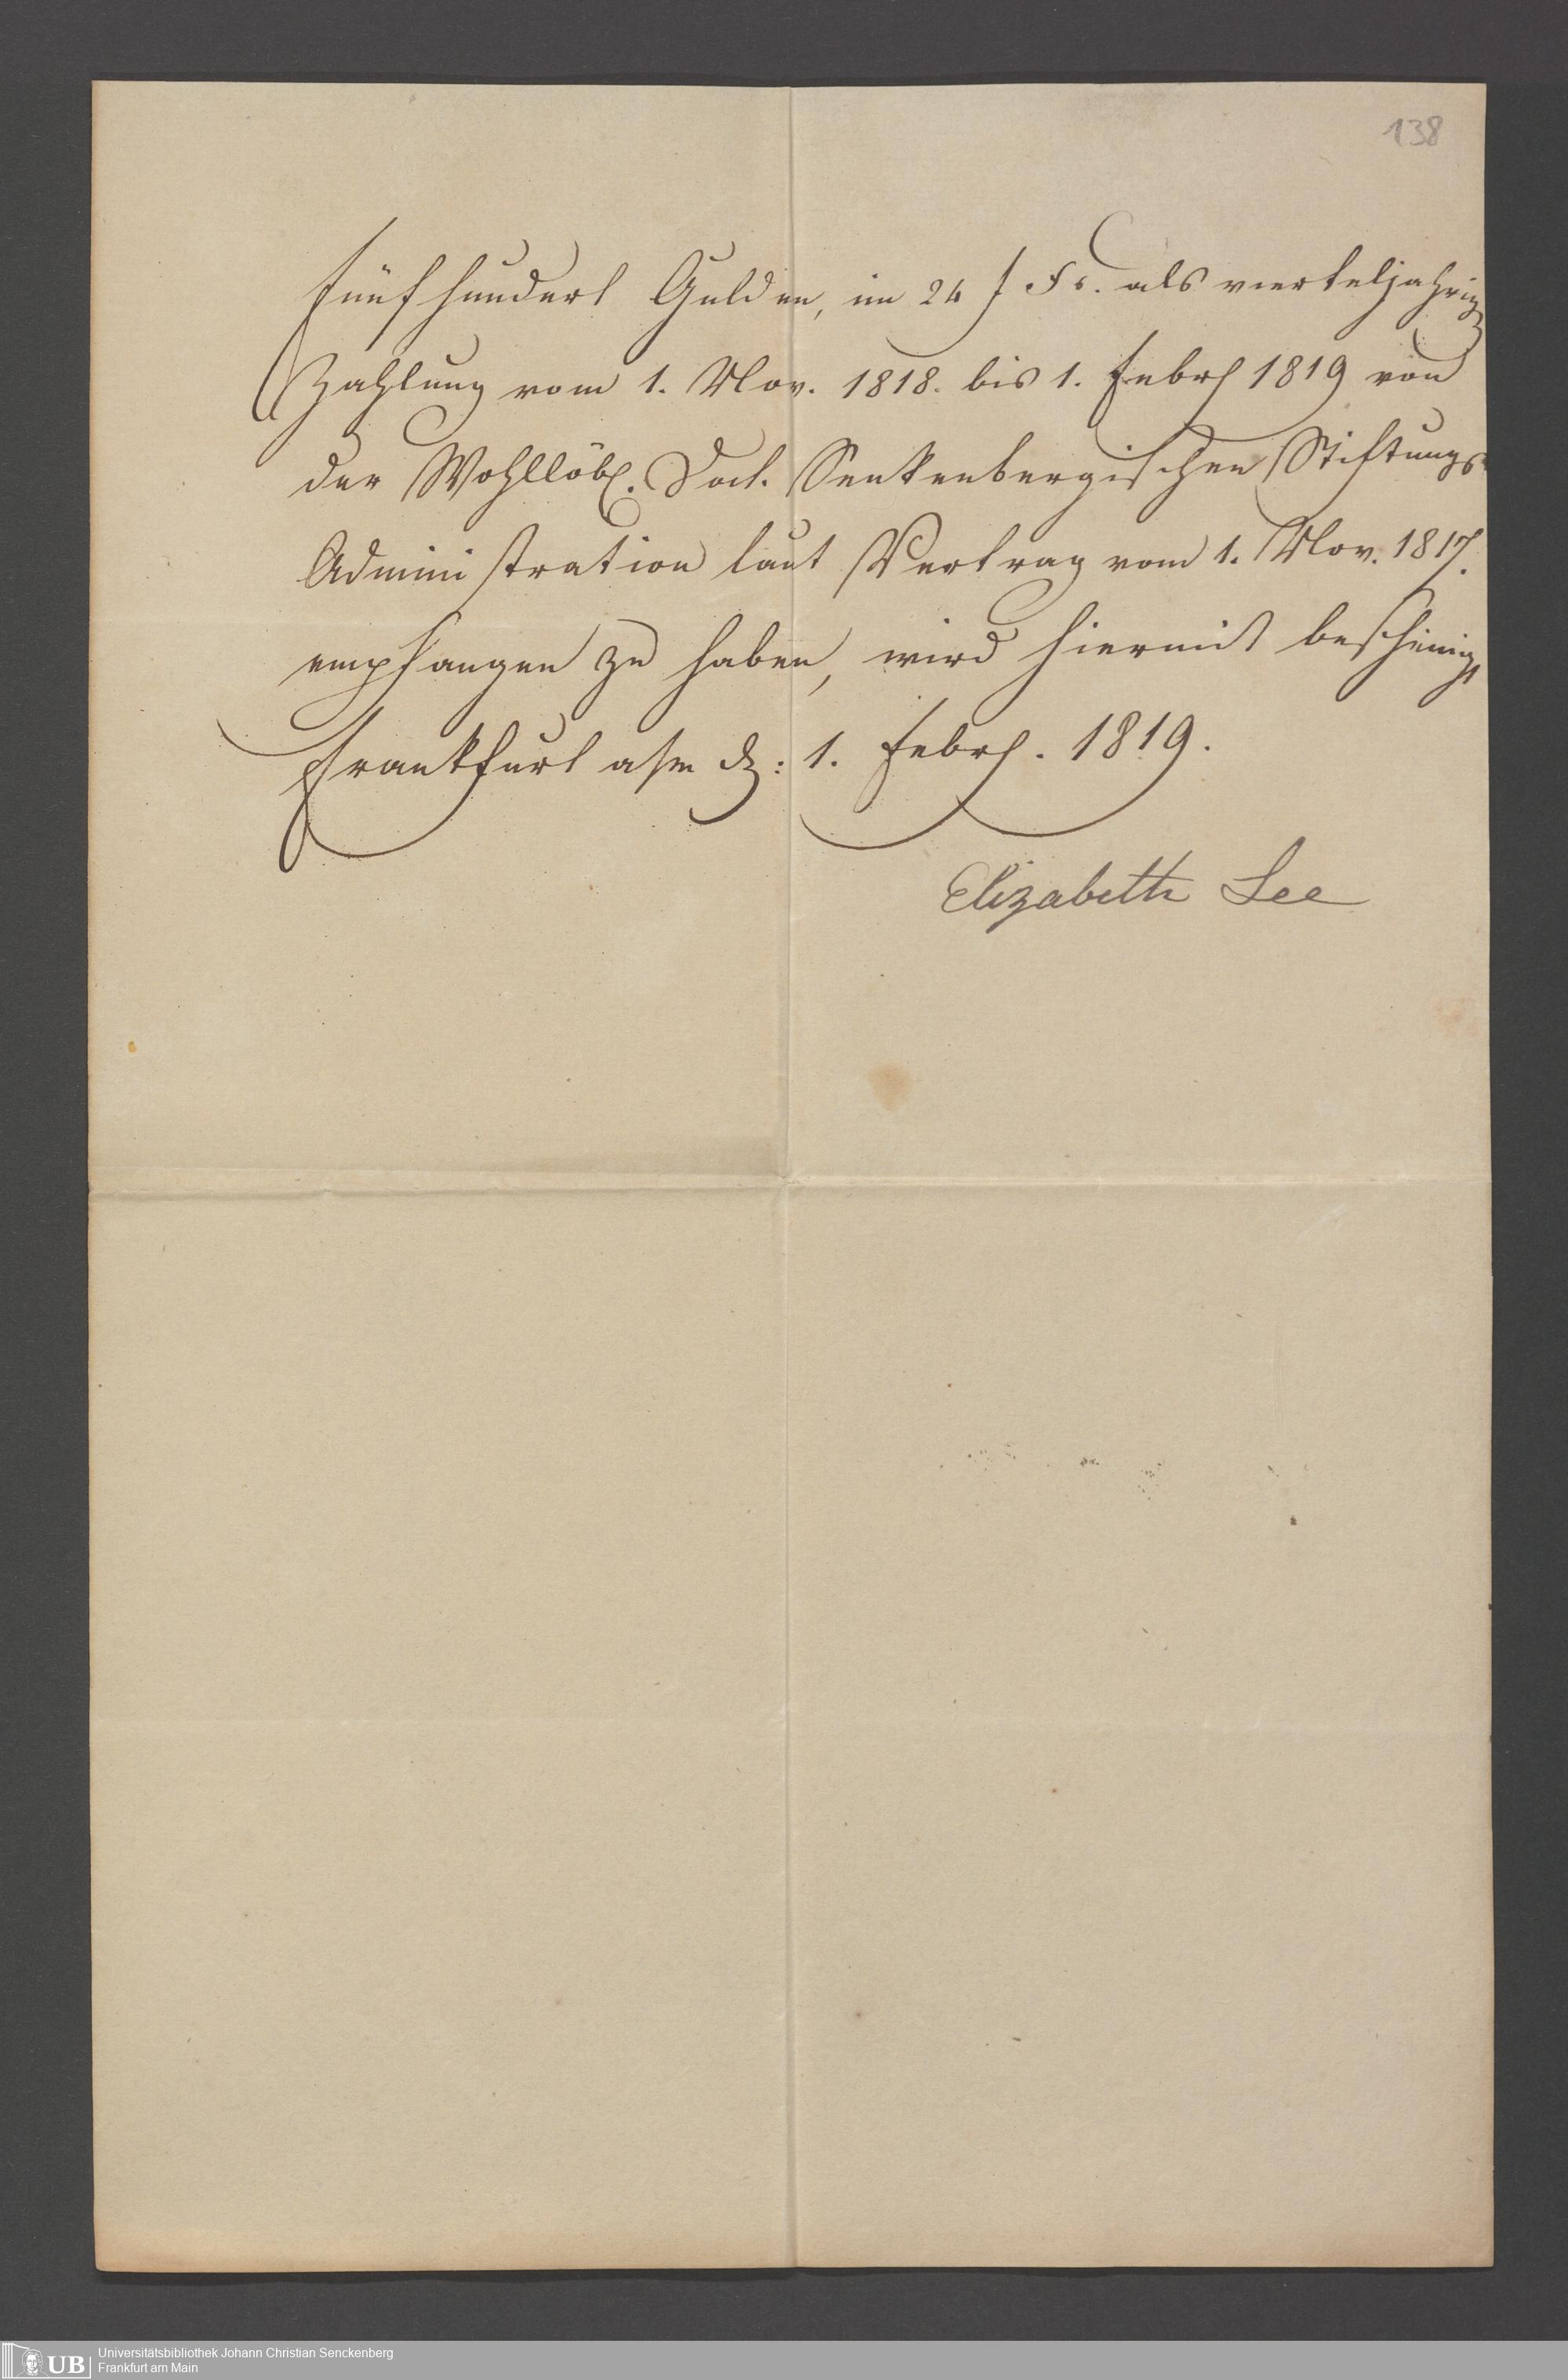 138
Fünfhundert Gulden, im 24 f Fs. als vierteljährige
Zahlung vom 1. Nov. 1818. bis 1. Febr. 1819 von
der Wohllöbl. Doct. Senkenbergischen Stiftungs-
Administration laut Vertrag vom 1. Nov. 1817.
empfangen zu haben, wird hiermit bescheinigt
Frankfurt a/m d.: 1. Febr. 1819.
Elizabeth Lee
UB
Universitätsbibliothek Johann Christian Senckenberg
Frankfurt am Main